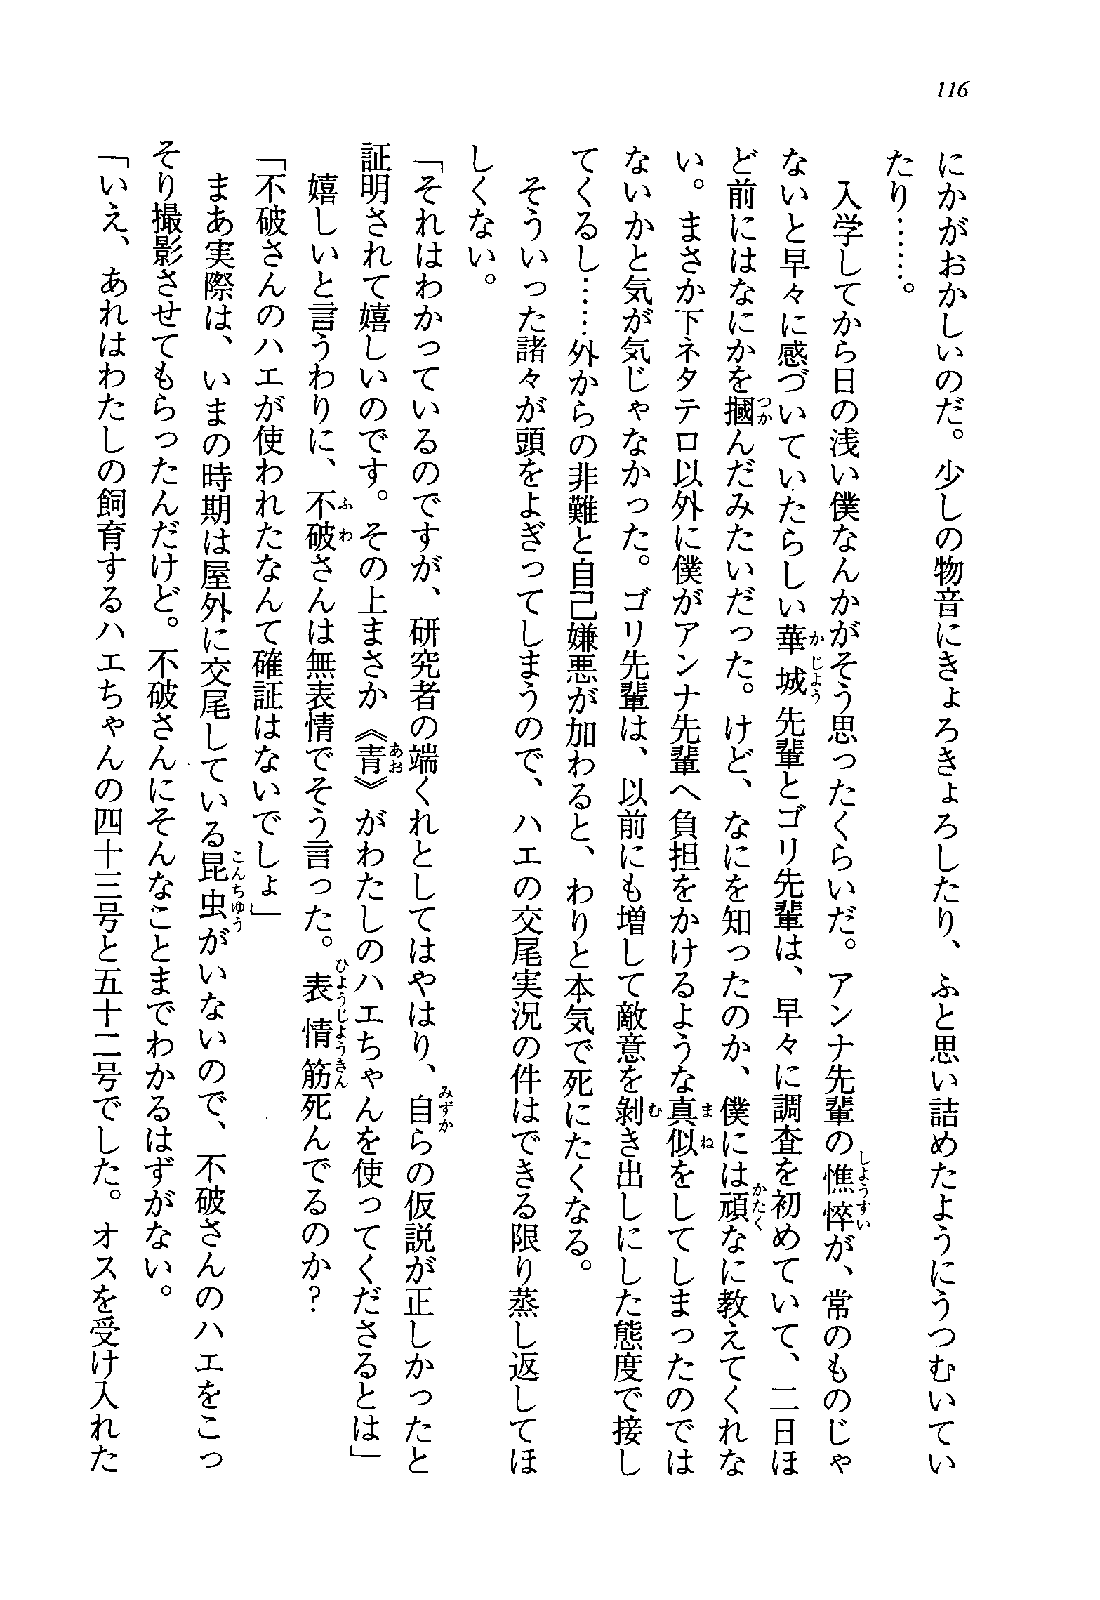 116
にかがおかしいのだ。少しの物音にきょろきょろしたり、ふと思い詰めたようにうつむいてい
たり……。
入学してから日の浅い僕なんかがそう思ったくらいだ。アンナ先輩の憔悴が、常のものじゃ
ないと早々に感づいていたらしい華城先輩とゴリ先輩は、早々に調査を初めていて、二日ほ
ど前にはなにかを摑んだみたいだった。けど、なにを知ったのか、僕には頑なに教えてくれな
い。まさか下ネタテロ以外に僕がアンナ先輩へ負担をかけるような真似をしてしまったのでは
ないかと気が気じゃなかった。ゴリ先輩は、以前にも増して敵意を剝き出しにした態度で接し
てくるし……外からの非難と自己嫌悪が加わると、わりと本気で死にたくなる。
そういった諸々が頭をよぎってしまうので、ハエの交尾実況の件はできる限り蒸し返してほ
しくない。
「それはわかっているのですが、研究者の端くれとしてはやはり、自らの仮説が正しかったと
証明されて嬉しいのです。その上まさか《青》がわたしのハエちゃんを使ってくださるとは」
嬉しいと言うわりに、不破さんは無表情でそう言った。表情筋死んでるのか?
「不破さんのハエが使われたなんて確証はないでしょ」
まあ実際は、いまの時期は屋外に交尾している昆虫がいないので、不破さんのハエをこっ
そり撮影させてもらったんだけど。不破さんにそんなことまでわかるはずがない。
「いえ、あれはわたしの飼育するハエちゃんの四十三号と五十二号でした。オスを受け入れた